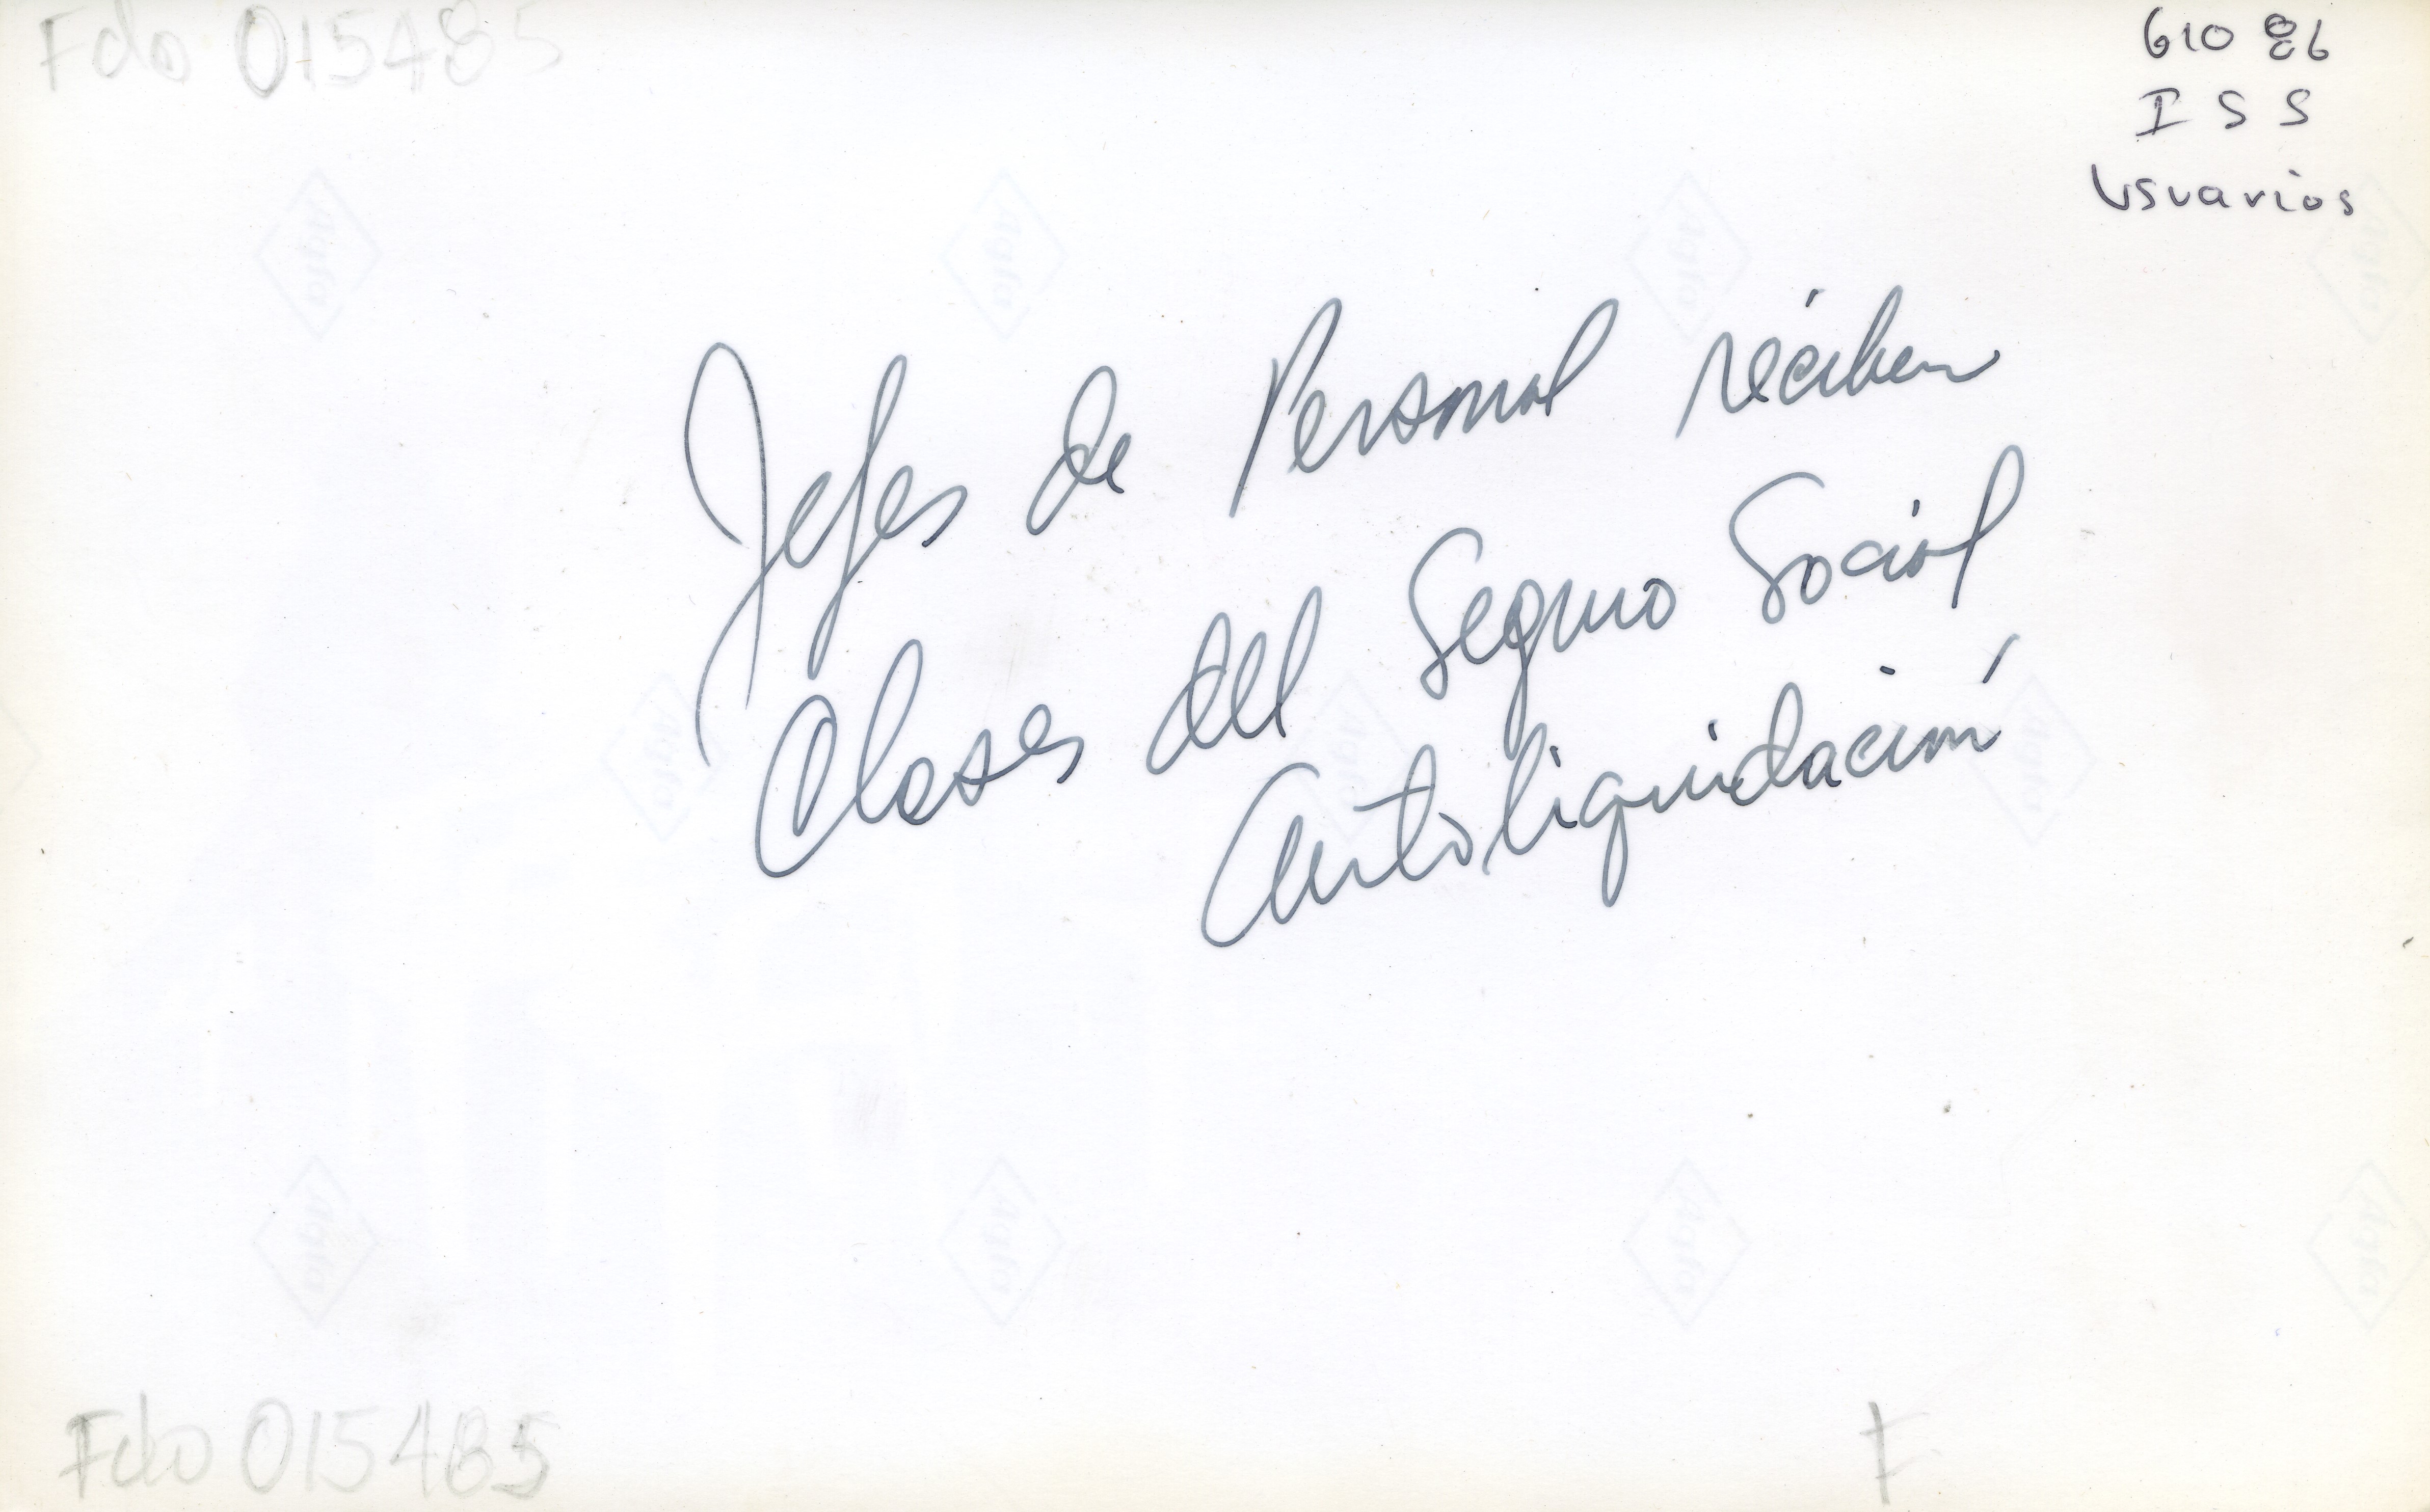 Fdo 015485
610 86
I S S
Usuarios
Jefes de Personal reciben
Clases del Seguro Social
Autoliquidación
Fdo 015485
F
Agfa
Agfa
Agfa
Agfa
Agfa
Agfa
Agfa
Agfa
Agfa
Agfa
Agfa